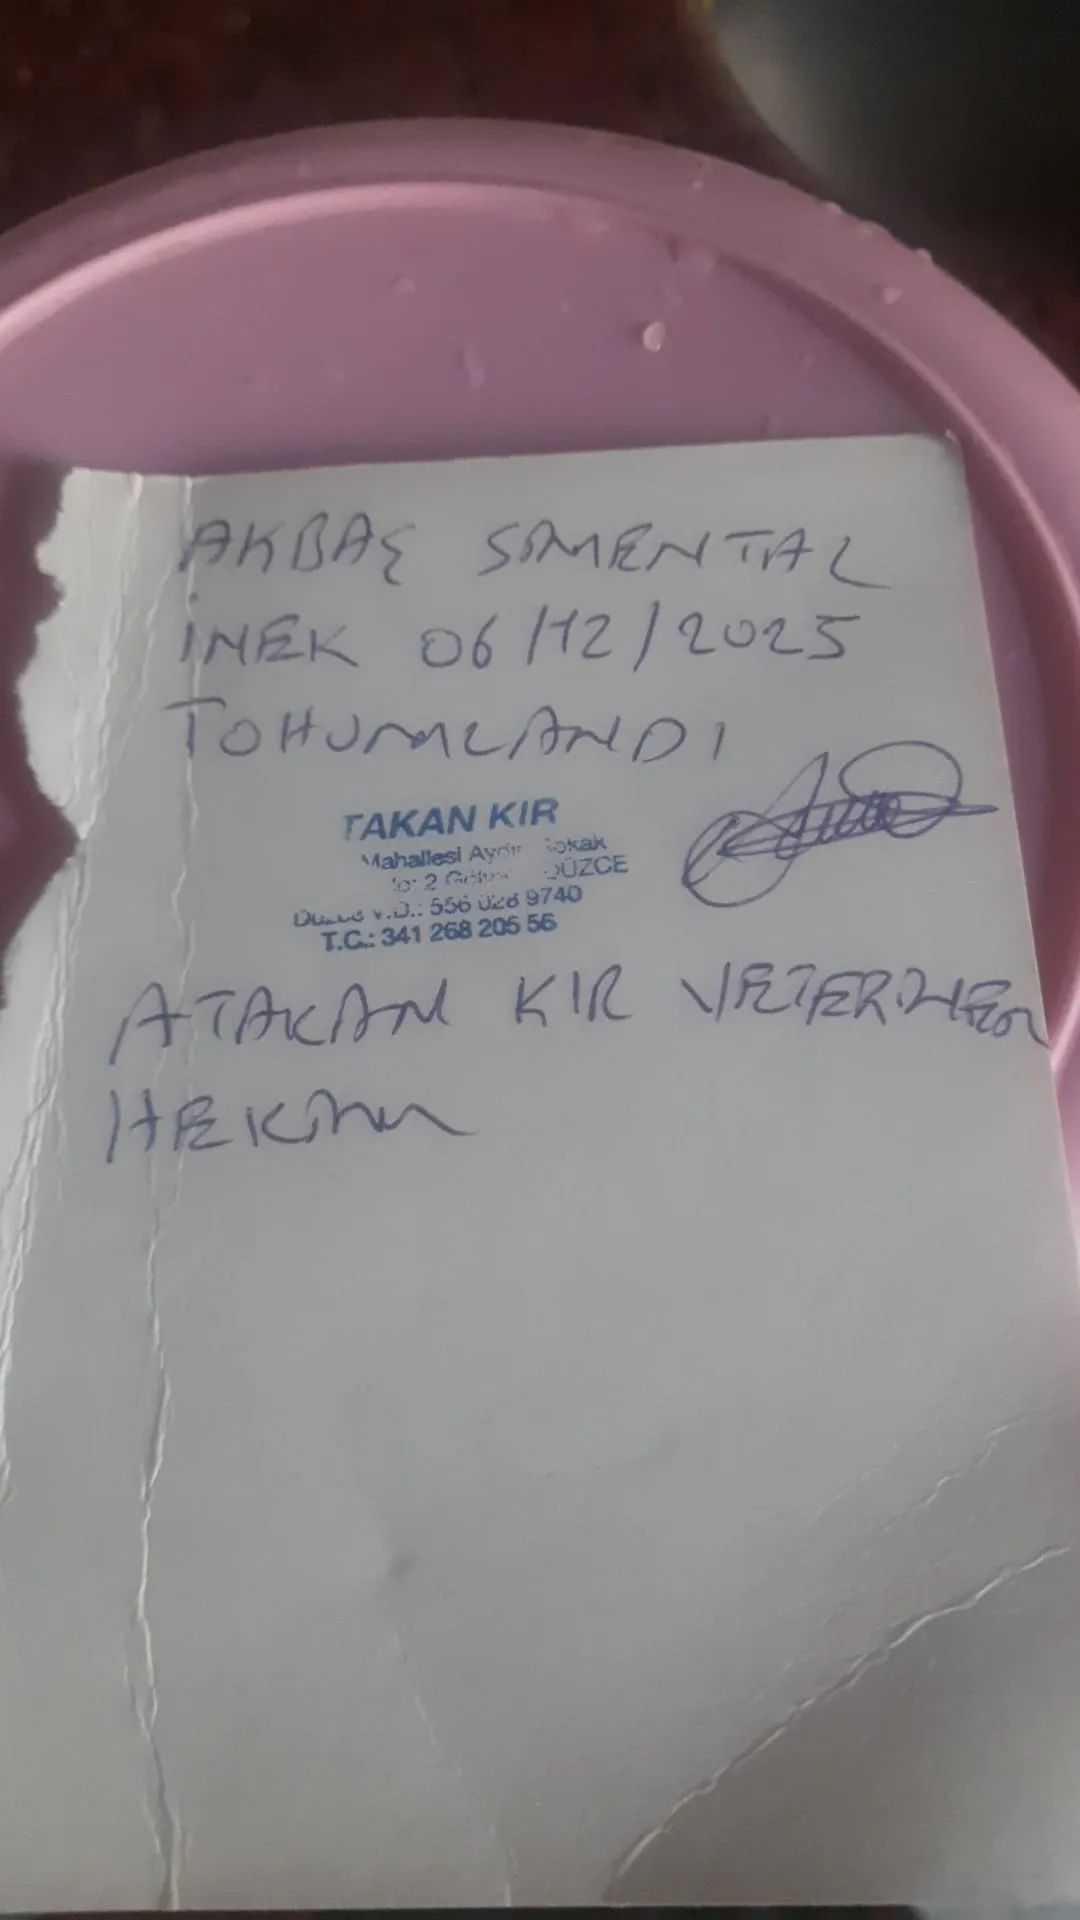 AKBAŞ SİMENTAL
İNEK 06/12/2025
TOHUMLANDI
TAKAN KIR
Mahallesi Aydın Sokak
No: 2 DÜZCE
V.D.: 556 028 9740
T.C.: 341 268 205 56
ATAKAN KIR VETERİNER
HEKİM